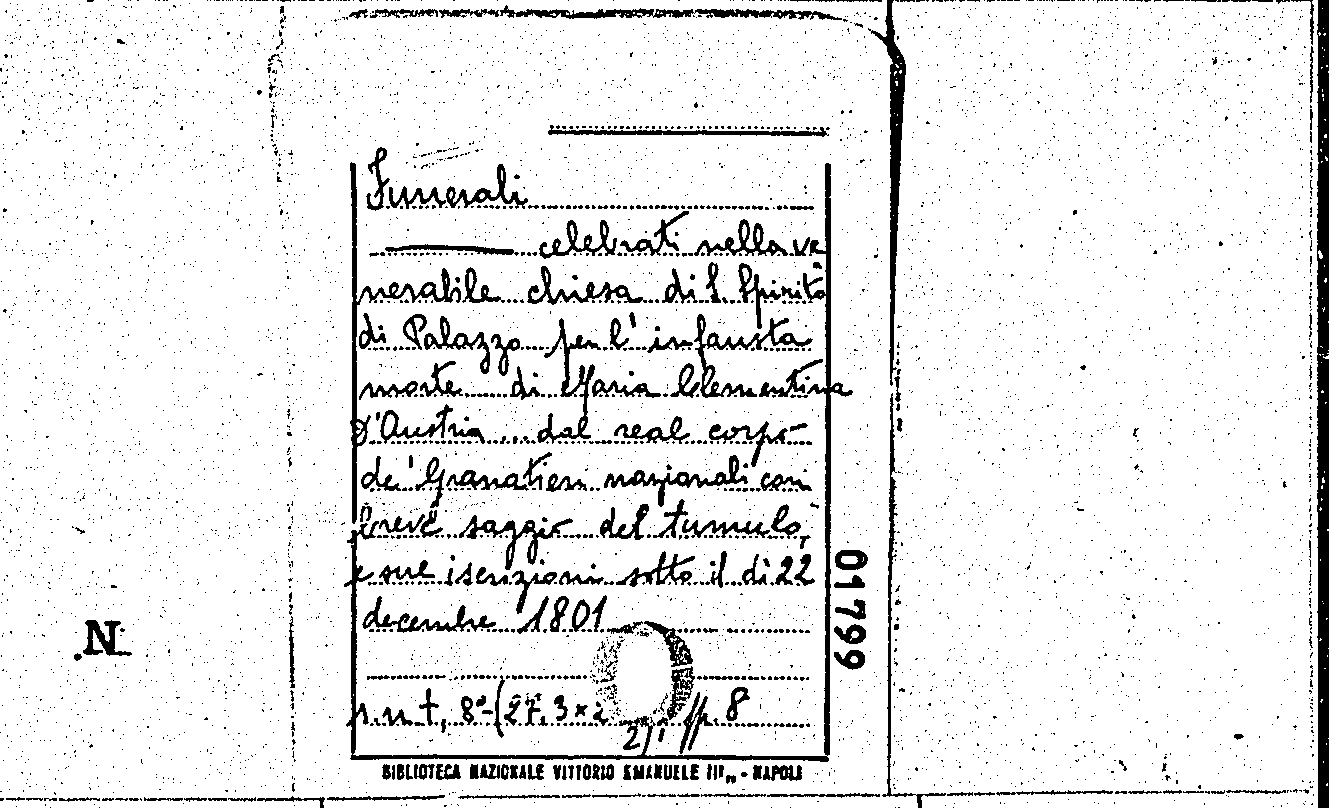 Funerali
celebrati nella ve
nerabile chiesa di S. Spirito
di Palazzo per l'infausta
morte di Maria Clementina
D'Austria ... dal real corpo
de' Granatieri nazionali con
breve saggio del tumulo,
e sue iscrizioni sotto il dì 22
decembre 1801
s.n.t, 8°-(27,3×2 p. 8
BIBLIOTECA NAZIONALE VITTORIO EMANUELE III„ - NAPOLI
01799
N